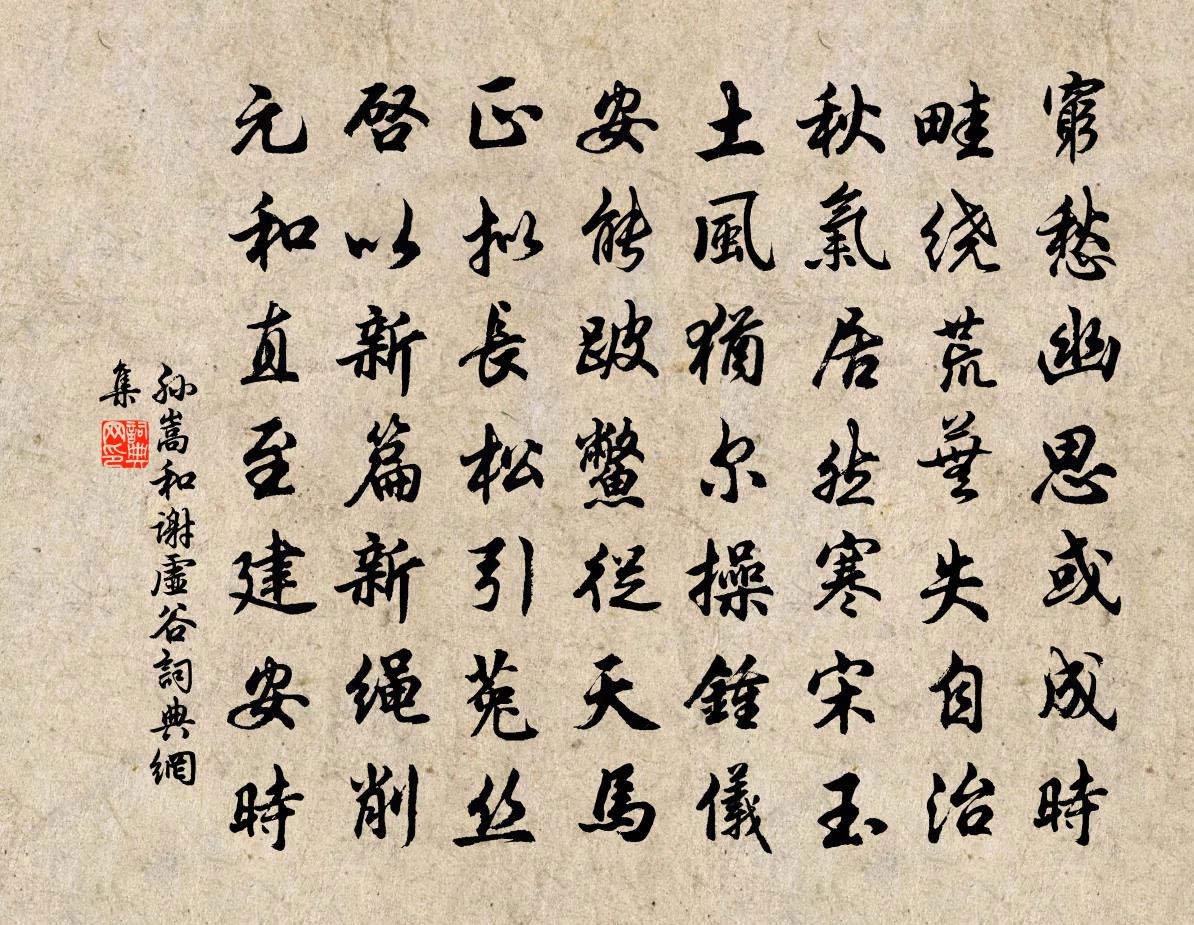 窮愁幽思或成時
畦绕荒蕪失自治
秋氣居然寒宋玉
土風猶尔操鍾儀
安能跛鱉從天馬
正拟長松引菟丝
啓以新篇新绳削
元和直至建安時
孙嵩和谢虛谷詞典網
集
詞典
网印